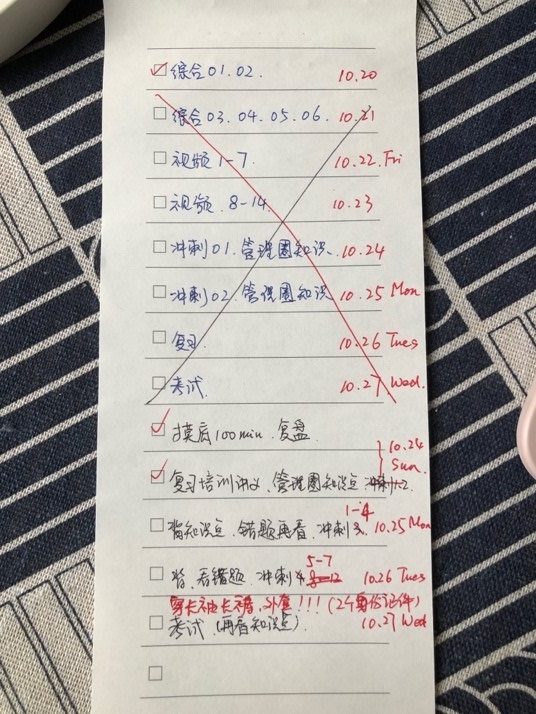 综合01.02. 10.20
综合03.04.05.06. 10.21
视频1-7. 10.22.Fri
视频.8-14 10.23
冲刺01.管理圈知识. 10.24
冲刺02.管理圈知识 10.25 Mon
复习. 10.26 Tues
考试. 10.27 Wed.
摸底100min.复盘. 10.24
复习培训讲义、管理圈知识点 Sun.
1-4
背知识点.错题再看.冲刺 10.25 Mon
5-7
背、看错题.冲刺 8-12 10.26 Tues
穿长袖长裤、外套!!!(2个身份证件)
考试(再看知识点) 10.27 Wed